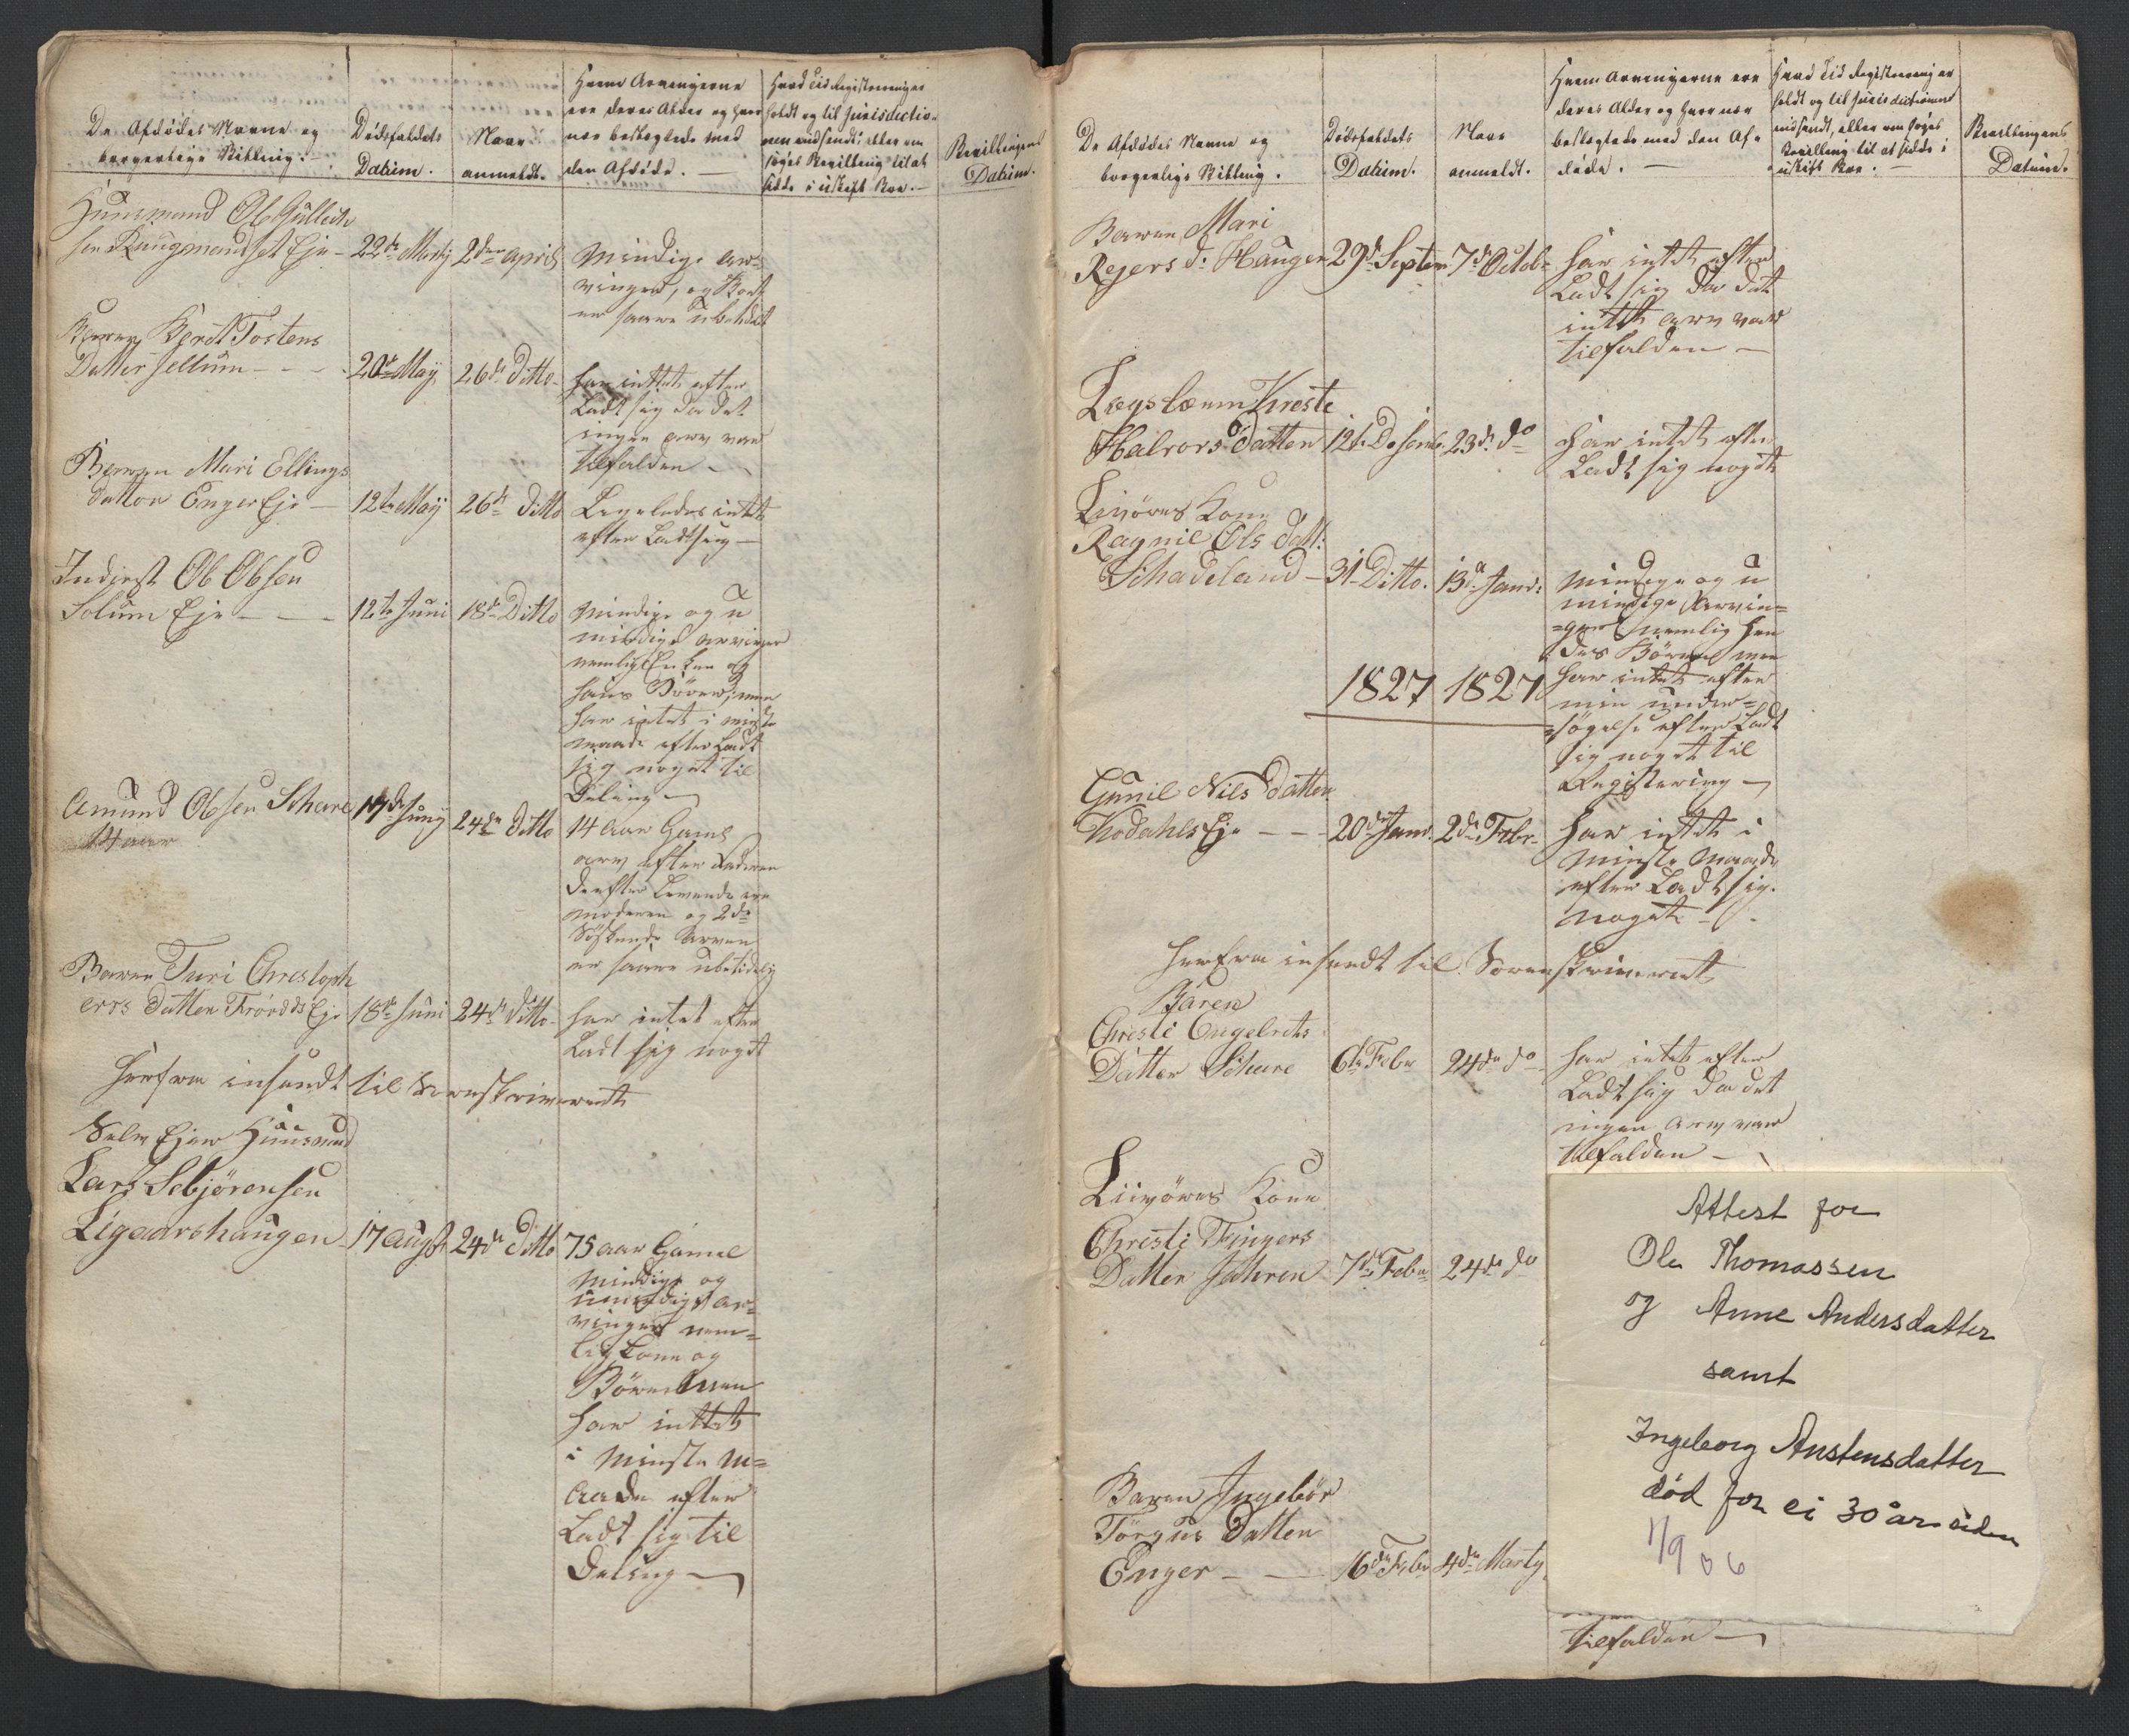 De Afdødes Navne og
borgerlige Stilling.
Dødsfaldets
Datum.
Naar
anmeldt.
Hvem Arvingerne
ere deres Alder og hvor
nær beslægtede med
den Afdøde.
Hvad Tid Registreringen
holdt og til Jurisdictio-
nen indsendt, eller om
søges Bevilling til at
sidde i uskift Boe.
Bevillingens
Datum.
Huusmand Ole Gulleik
sen Eje - 22de Martz 2den April Mindige Ar-
vinger, og Boet
er saare ubetydet
Barnet Beret Tostens
Datter Sellum - - - 20de May 26de Ditto har inttet efter
Ladt sig da det
ingen arv var
tilfalden
Barnen Mari Ellings
datter Enger Eje - 12te May 26de Ditto Ligeledes intet
efter Ladt sig
Inderst Ole Olsen
Solum Eje - - - 12te Juni 18de Ditto Mindige og u
mindige arvinger
nemlig Enken og
hans Børn, men
har intet i minste
maade efter Ladt
sig noget til
Deling
Amund Olsen Schare 17de Juny 24de Ditto 14 Aar Gaml
14 aar
arv efter Faderen
derefter Levende ere
moderen og 2de
Søskende Arven
er saare ubetydelig
Barnet Turi Christoph
ers Datter Eje 18de Juni 24de Ditto har intet efter
Ladt sig noget
Herfra insendt til Sorenskriveriet
Selv Ejer Huusmand
Lars Sebjørensen
Ligaarshaugen 17 August 24de Ditto 75 aar Gamel
Mindige og
umindige ar-
vinger nem-
lig Kone og
Børn Men
har inttet
i Minste m-
aade efter
Ladt sig til
Deling
De Afdødes Navne og
borgerlige Stilling.
Dødsfaldets
Datum.
Naar
anmeldt.
Hvem Arvingerne ere
deres Alder og hvor nær
beslægtede med den Af-
døde.
Hvad Tid Registrering er
holdt og til Jurisdictionen
indsendt, eller om søges
Bevilling til at sidde i
uskift Boe.
Bevillingens
Datum.
Barnen Mari
Rejers d. Haugen 29de Septem 7de Octobr har intet efter
Ladt sig da det
intet arv var
tilfalden
Lægslæmm Kreste
Halvors Datter 12te Desemb. 23de do har intet efter
Ladt sig noget
Livørens Kone
Ragnil Ols Datt:
Schadeland - 31 Ditto. 13de Janv: Mindige og u
mindige Arvin-
ger nemlig hen
des Børn men
har intet efter
min under-
søgelse efter Ladt
sig noget til
Registering
1827 1827
Gunil Nils Datter
Kodahls Eje - - - 20de Janv. 2de Febr. har intet i
Minste Maade
efter Ladt sig
noget
Herfra insendt til Sorenskriveriet
Baren
Christi Engelrets
Datter Schare 6te Febr 24de do har intet efter
Ladt sig da det
ingen arv var
tilfalden
Livørens Kone
Christi Fingers
Datter Jahren 7de Febr 24de do
Baren Ingebør
Torgus Datter
Enger - - - 16de Febr 4de Marty
tilfalden
Attest for
Ole Thomassen
og Anne Andersdatter
samt
Ingeborg Anstensdatter
død for ei 30 år siden
1/9 06